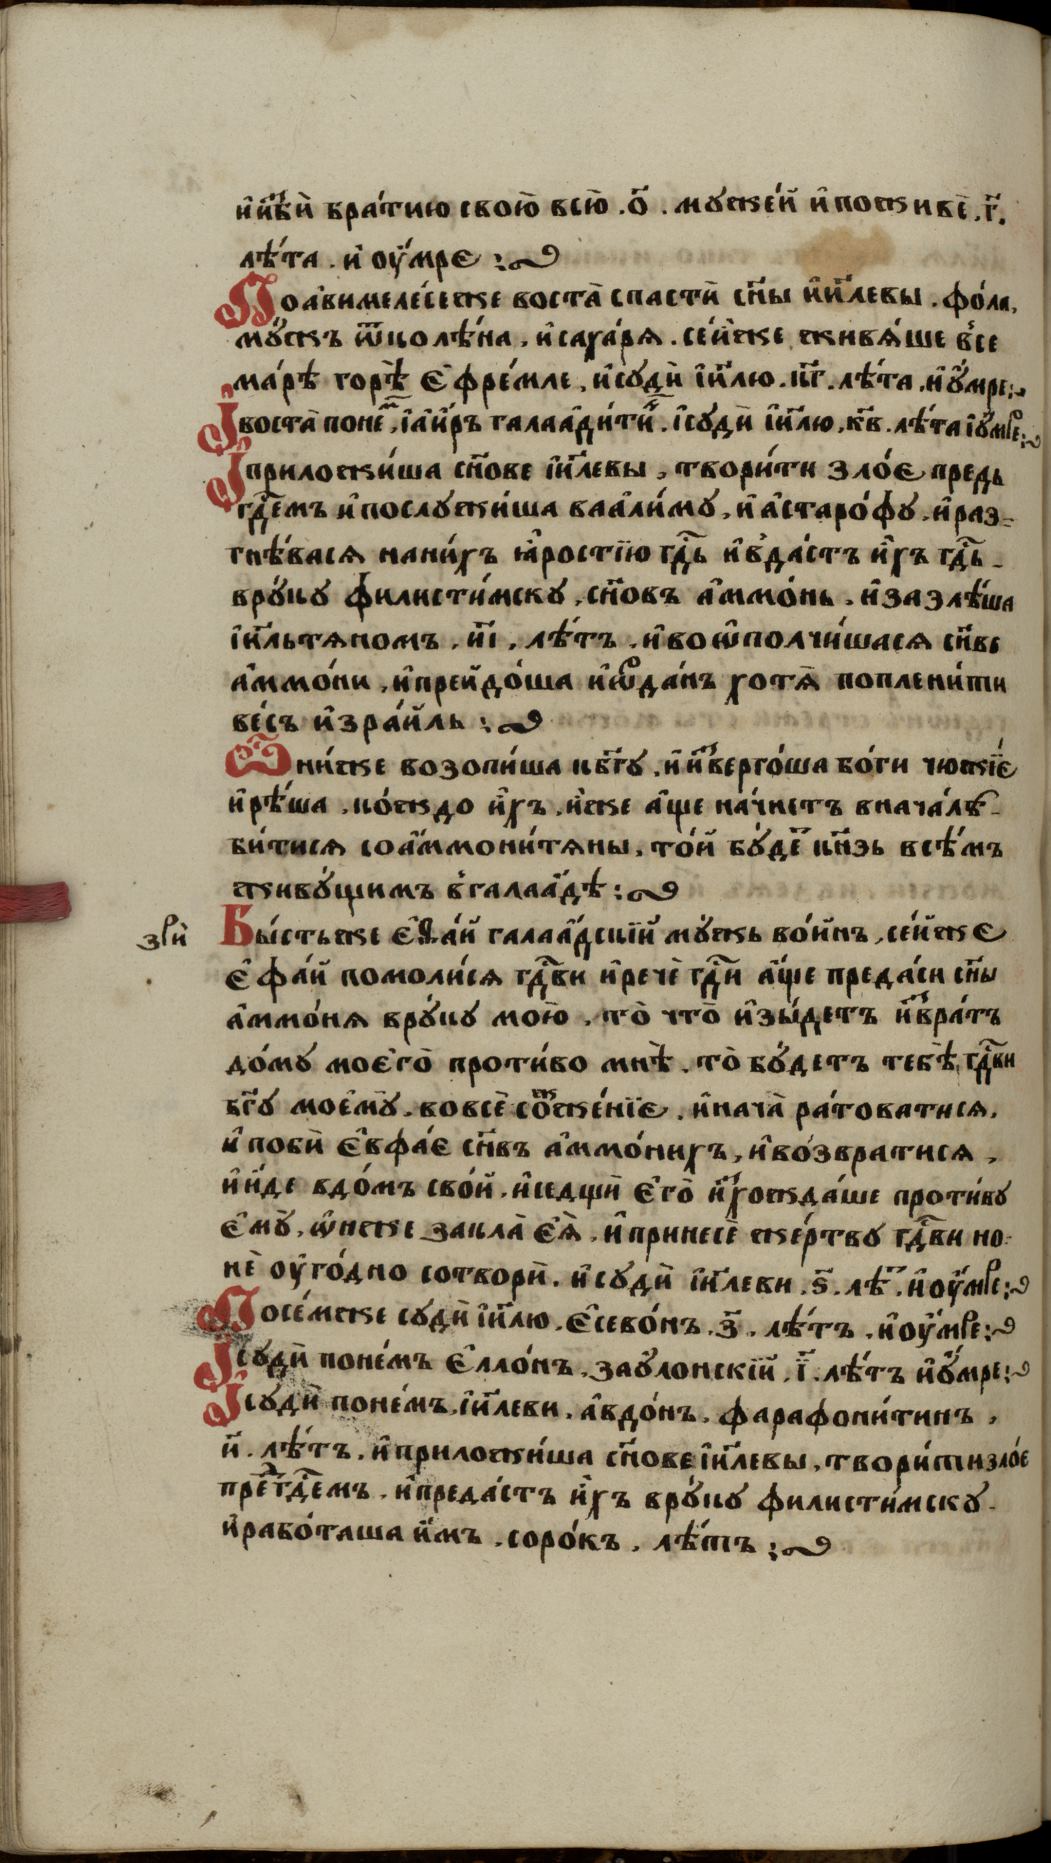 и҆и҆зби̑ бра́тию свою̀ всю̀ . о҃ . мꙋже́й и҆поживѐ . г҃ .
лѣ́та . и҆ оу҆́мре :~
Поа҆вимеле́сеже воста̀ спасти̑ сн҃ы і҆и҃левы . фѡ́ла ,
мꙋ́жъ ѿколѣ́на . и҆саха́рѧ . се́йже живѧ́ше в҆се
ма́рѣ горѣ̀ є҆фре́мле , и҆сꙋдѝ і҆и҃лю . к҃г . лѣ́та . и҆оу҆́мре :~
І҆воста̀ поне́м , і҆а҆и́ръ галаа҆ди́тин . і҆сꙋдѝ і҆и҃лю , к҃в . лѣ́та і҆оу҆́мре :~
І҆приложи́ша сн҃ове і҆и҃левы , твори́ти зло́е предъ
гд҇емъ и҆послꙋжи́ша ваа҆ли́мꙋ , и҆ а҆старо́фꙋ . и҆раз-
гнѣ́васѧ нани́хъ ꙗ҆́ростїю гд҇ь и҆в҆да́стъ и҆̀хъ гд҇ь -
врꙋ́кꙋ филисти́мскꙋ , сн҃овъ а҆ммо́нь . и҆заѕлѣ́ша
і҆и҃льтѧномъ . и҃і . лѣ́тъ . и҆воѡ҆полчи́шасѧ сн҃ве
а҆ммо́ни , и҆прейдо́ша и҆ѡ҆рда́нъ хотѧ̀ поплени́ти
ве́сь и҆зра́иль :~
Ѻ҆ни́же возопи́ша кбг҃ꙋ . и҆ и҆зверго́ша бо́ги чюжїѐ
и҆рѣ́ша . ко́ждо и҆̀хъ . и҆́же а҆́ще на́чнетъ внача́лѣ -
би́тисѧ соа҆ммони́тѧны , то́й бꙋ́дет кн҃зь всѣ́мъ
живꙋ́щимъ в҆галаа҆́дѣ :~
зри̑
Бы́стьже є҆ѳа́й галаа҆́дскїй мꙋ́жь во́инъ , се́йже
є҆фа́й помоли́сѧ гд҇ви и҆речѐ гд҇и а҆́ще преда́си сн҃ы
а҆ммо́нѧ врꙋ́кꙋ мою̀ . то̀ что̀ и҆зы́детъ и҆звра́тъ
до́мꙋ моего̀ проти́во мнѣ̀ . то̀ бꙋ́детъ тебѣ̀ гд҇ви
бг҃ꙋ моемꙋ̀ . вовсѐ сожже́нїе . и҆нача̀ ра́товатисѧ .
и҆ побѝ є҆вфа́е сн҃въ а҆ммо́нихъ , и҆во́звратисѧ ,
и҆ и҆́де вдо́мъ сво́й . и҆седщѝ є҆го̀ и҆схожда́ше проти́вꙋ
є҆мꙋ̀ . ѡ҆́нже закла̀ є҆ѧ̀ . и҆принесѐ же́ртвꙋ гд҇ви но
нѐ оу҆го́дно сотворѝ . и҆сꙋдѝ і҆и҃леви . ѕ҃ . лѣт . и҆оу҆́мре :~
Посе́мже сꙋдѝ і҆и҃лю . є҆сево́нъ . з҃ . лѣ́тъ . и҆оу҆́мре :~
І҆сꙋдѝ поне́мъ є҆лло́нъ . заꙋ́лонскїй . і҃ . лѣ́тъ и҆оу҆́мре :~
І҆сꙋдѝ поне́мъ . і҆и҃леви . а҆вдо́нъ . фарафони́тинъ ,
и҃ . лѣ́тъ . и҆приложи́ша сн҃ове і҆и҃левы , твори́ти зло́е
пред гд҇емъ . и҆преда́стъ и҆̀хъ врꙋ́кꙋ филисти́мскꙋ .
и҆рабо́таша и҆̀мъ . соро́къ . лѣ́тъ :~